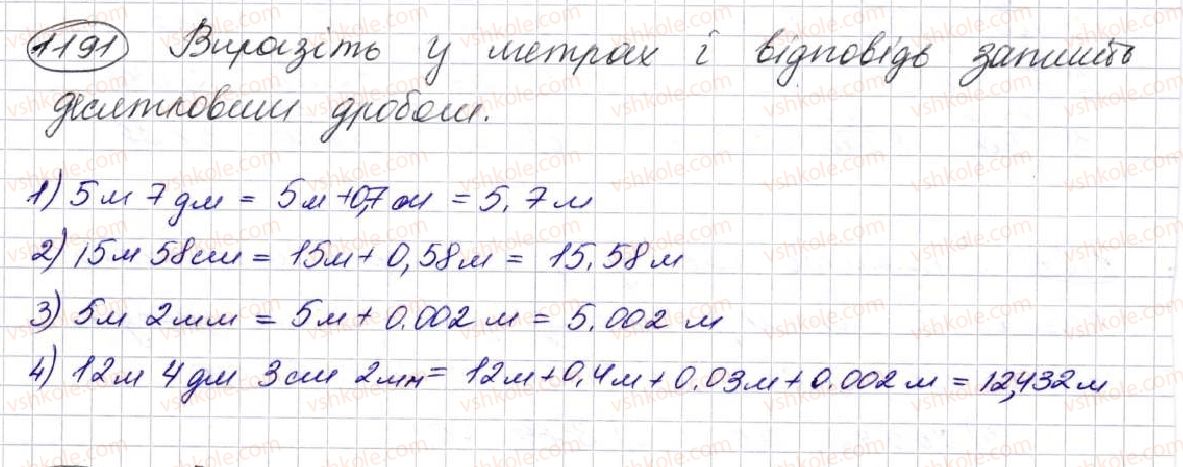 1191 Виразіть у метрах і відповідь запишіть
десятковим дробом.
1) 5м 7дм = 5м+0,7м = 5,7м
2) 15м 58см = 15м+ 0,58м = 15,58м
3) 5м 2мм = 5м+0.002 м = 5.002 м
4) 12м 4дм 3см 2мм= 12м+0,4м+0.03м+0.002м = 12,432м